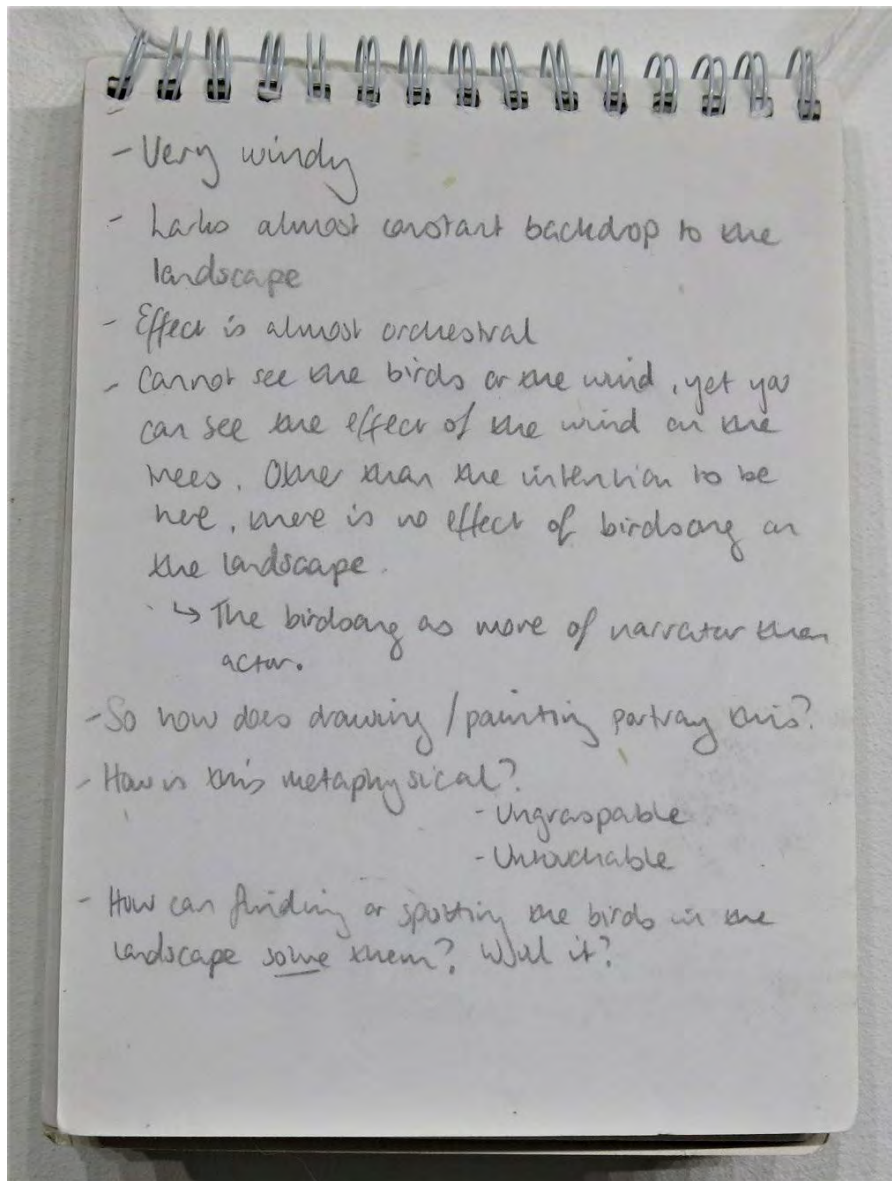 - Very windy
- Larks almost constant backdrop to the
landscape
- Effect is almost orchestral
- Cannot see the birds or the wind, yet you
can see the effect of the wind on the
trees. Other than the intention to be
here, there is no effect of birdsong on
the landscape.
↳ The birdsong as more of narrator than
actor.
- So how does drawing / painting portray this?
- How is this metaphysical?
- Ungraspable
- Untouchable
- How can finding or spotting the birds in the
landscape them? Will it?